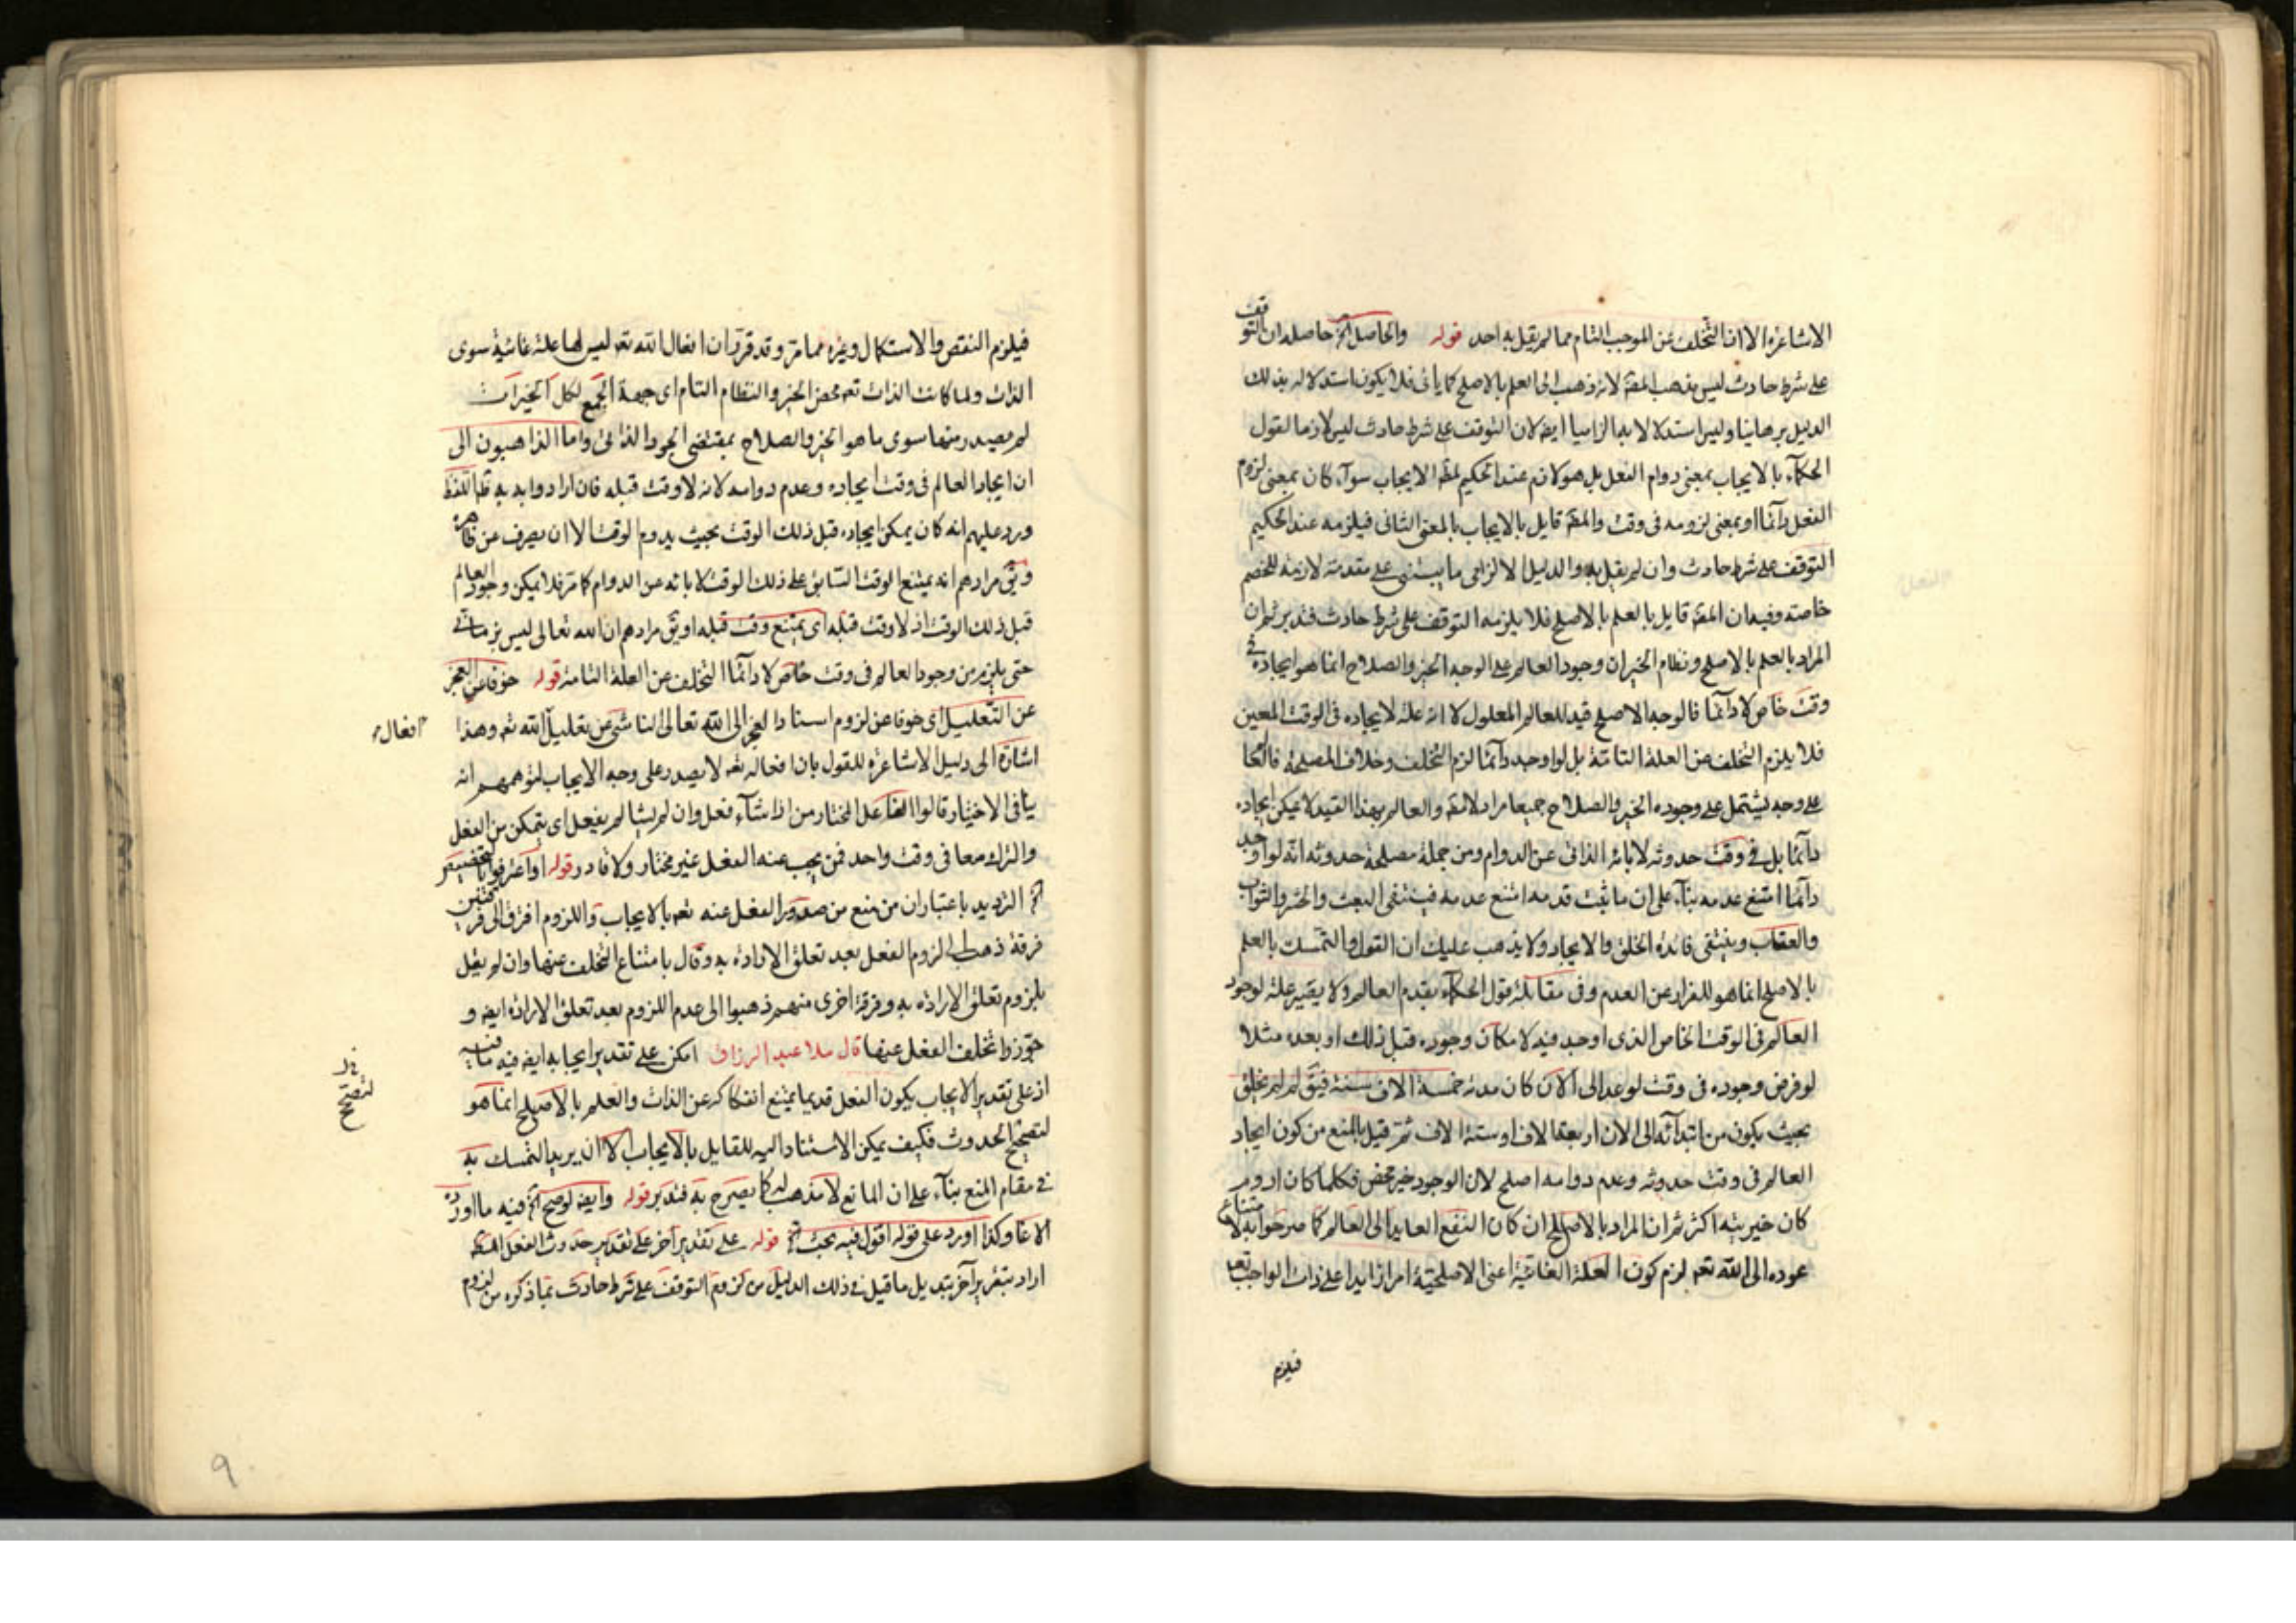 الاشاعرة الا ان التخلف عن الموجب التام مما لم يقل به احد قوله والحاصل الخ حاصله ان التوقف
على شرط حادث ليس مذهب المصّ لانه ذهب الى العلم بالاصلح كما ياتى فلا يكون استدلاله بذلك
الدليل برهانيا وليس استدلالا به الزاميا ايضا لان التوقف على شرط حادث ليس لازما لقول
الحكماء بالايجاب بمعنى دوام الفعل بل هو لازم عند الحكيم لمطلق الايجاب سواء كان بمعنى لزوم
الفعل دائما او بمعنى لزومه فى وقت والمصّ قايل بالايجاب بالمعنى الثانى فيلزمه عند الحكيم
التوقف على شرط حادث وان لم يقل به والدليل الالزامى ما يبتنى على مقدمة لازمة للخصم
خاصته وفيه ان المصّ قايل بالعلم بالاصلح فلا يلزمه التوقف على شرط حادث فتدبر ثم ان
المراد بالعلم بالاصلح ونظام الخير ان وجود العالم على الوجه الخير والصلاح انما هو ايجاده فى
وقت خاص لا دائما فالوجه الاصلح قيد للعالم المعلول لا انه علة لايجاده فى الوقت المعين
فلا يلزم التخلف عن العلة التامة بل لو اوجد دائما لزم التخلف وخلاف المصلحة فالعالم
على وجه يشتمل على وجوده الخير والصلاح جميعا مراد لله تعالى والعالم بهذا القيد لا يمكن ايجاده
دائما بل فى وقت حدوثه لابائه الذاتى عن الدوام ومن جملة مصلحة حدوثه انه لو اوجد
دائما امتنع عدمه بناء على ان ما ثبت قدمه امتنع عدمه فينتفى البعث والحشر والثواب
والعقاب وينتفى فائدة الخلق والايجاد ولا يذهب عليك ان القول والتمسك بالعلم
بالاصلح انما هو للفرار عن العدم وفى مقابلة قول الحكماء بقدم العالم ولا يصير علة لوجود
العالم فى الوقت الخاص الذى اوجد فيه لامكان وجوده قبل ذلك او بعده مثلا
لو فرض وجوده فى وقت لو عد الى الان كان مدته خمسة الاف سنة فيقّ لم لم يخلق
بحيث يكون من ابتدائه الى الان اربعة الاف او ستة الاف ثم قيل بالمنع من كون ايجاد
العالم فى وقت حدوثه وعدم دوامه اصلح لان الوجود خير محض فكلما كان ادوم
كان خيريته اكثر ثم ان المراد بالاصلح ان كان النفع العايد الى العالم كما صرحوا به لامتناع
عوده الى الله تعه لزم كون العلة الغائية اعنى الاصلحية امرا زايدا على ذات الواجب تعه
فيلزم
فيلزم النقص والاستكمال وغيره مما مر وقد قرر ان افعال الله تعه ليس لها علة غائية سوى
الذات ولما كانت الذات تعه محض الخير والنظام التام اى جهة الجمع لكل الخيرات
لم يصدر منها سوى ما هو الخير والصلاح بمقتضى الجود الذاتى واما الذاهبون الى
ان ايجاد العالم فى وقت ايجاده وعدم دوامه لانه لا وقت قبله فان ارادوا به ظاهر اللفظ
ورد عليهم انه كان يمكن ايجاده قبل ذلك الوقت بحيث يدوم الوقت الا ان يصرف عن ظاهره
ويقّ مرادهم انه يمتنع الوقت السابق على ذلك الوقت لابائه عن الدوام كما مر فلا يمكن وجود العالم
قبل ذلك الوقت اذ لا وقت قبله اى يمتنع وقت قبله او يقّ مرادهم ان الله تعالى ليس بزمانى
حتى يلزم من وجود العالم فى وقت خاص لا دائما التخلف عن العلة التامة قوله خوفا عن العجز
عن التعليل اى خوفا عن لزوم اسناد العجز الى الله تعالى الناشى عن تعليل الله تعه وهذا
افعال
اشارة الى دليل الاشاعرة للقول بان افعاله تعه لا يصدر على وجه الايجاب لتوهمهم انه
ينافى الاختيار قالوا الفاعل المختار من اذا شاء فعل وان لم يشا لم يفعل اى يتمكن من الفعل
والترك معا فى وقت واحد فمن يجب عنه الفعل غير مختار ولا قادر قوله او اعترفوا بالتخصيص
الخ الترديد باعتبار ان من منع من صدور الفعل عنه تعه بالايجاب واللزوم افترق الى فرقتين
فرقة ذهب الى لزوم الفعل بعد تعلق الارادة به وقال بامتناع التخلف عنها وان لم يقل
بلزوم تعلق الارادة به وفرقة اخرى منهم ذهبوا الى عدم اللزوم بعد تعلق الارادة ايضا و
جوزوا تخلف الفعل عنها قال ملا عبد الرزاق امكن على تقدير ايجابه ايضا فيه ما فيه
اذ على تقدير الايجاب يكون الفعل قديما يمتنع انفكاكه عن الذات والعلم بالاصلح انما هو
لتصحيح الحدوث فكيف يمكن الاستناد اليه للقايل بالايجاب الا ان يريد التمسك به
فى مقام المنع بناء على ان المانع لا مذهب له كما يصرح به فتدبر قوله وايضا لو صح الخ فيه ما اورده
الاغا وكذا اورد على قوله اقول فيه بحث الخ قوله على تقدير آخر على تقدير حدوث الفعل
اراد بتقرير آخر تبديل ما قيل فى ذلك الدليل من لزوم التوقف على شرط حادث بما ذكره من لزوم
9